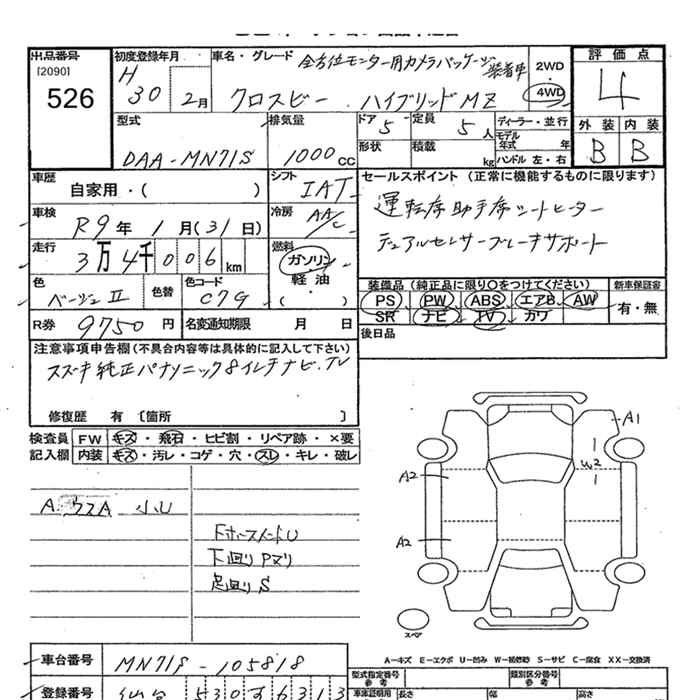 出品番号 初度登録年月 車名・グレード 評価点
[2090] 526
H 30 2月
全方位モニター用カメラパッケージ装着車
クロスビー ハイブリッドMZ
2WD 4WD
4
外装 内装
B B
型式 排気量 ドア 定員 ディーラー・並行
DAA-MN71S 1000cc 5 5人
モデル年式 年
形状 積載 kg ハンドル 左・右
車歴 自家用・( )
シフト IAT
セールスポイント (正常に機能するものに限ります)
運転席助手席シートヒーター
デュアルセンサーブレーキサポート
車検 R9年1月(31日)
冷房 AAC
走行 3万4千006km
燃料 ガソリン・軽油・( )
色 ベージュII 色替 色コード C7G
装備品 (純正品に限り○をつけてください) 新車保証書
PS PW ABS エアB AW 有・無
SR ナビ TV カワ
R券 9750円 名変通知期限 月 日
後日品
注意事項申告欄 (不具合内容等は具体的に記入して下さい)
スズキ純正パナソニック8インチナビ.TV
修復歴 有 〔箇所 〕
検査員記入欄 FW キズ・飛石・ヒビ割・リペア跡・×要
内装 キズ・汚レ・コゲ・穴・スレ・キレ・破レ
A1
W2
A2
A2
小U
下回りPヌリ
足回りS
スペア
A-キズ E-エクボ U-凹み W-補修跡 S-サビ C-腐食 XX-交換済
車台番号 MN71S-105818
型式指定番号 参考 類別区分番号 参考
登録番号 仙台 530
車庫証明用 長さ 幅 高さ